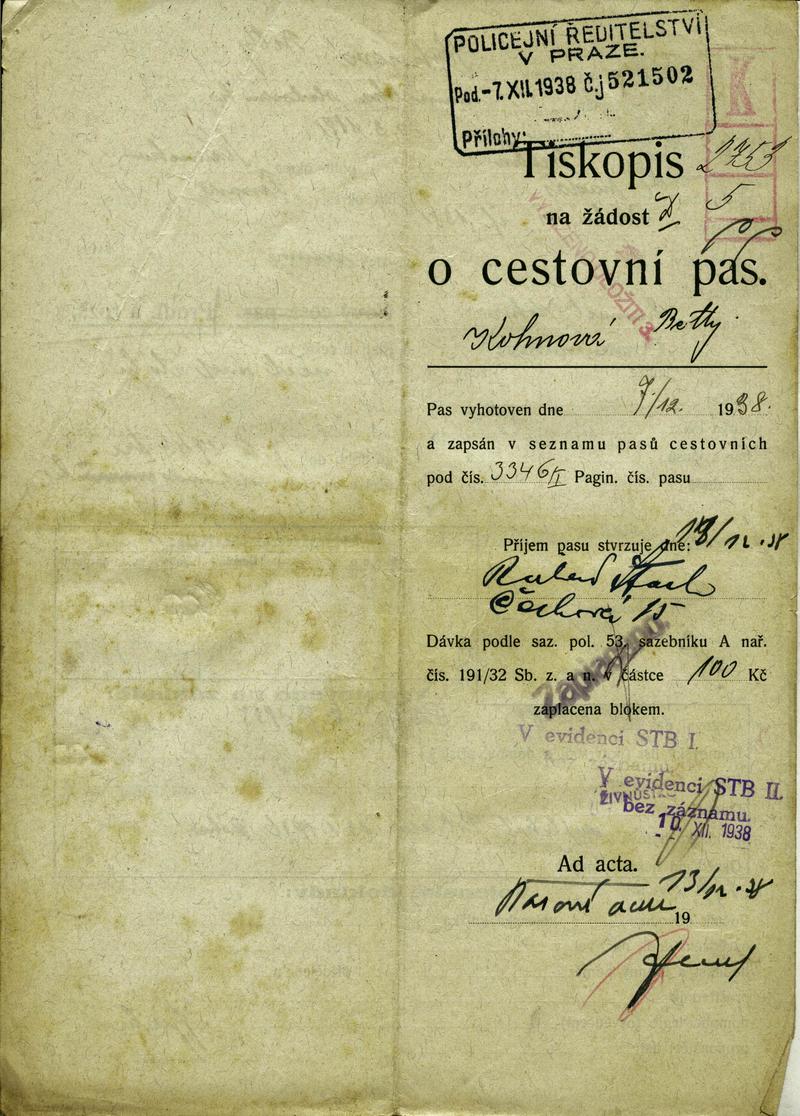 POLICEJNÍ ŘEDITELSTVÍ
V PRAZE.
Pod.-7.XII.1938 Č.j 521502
Přílohy:
K
Tiskopis 2753
na žádost 5
o cestovní pas.
Kohnová Betty
Pas vyhotoven dne 7/12. 1938.
a zapsán v seznamu pasů cestovních
pod čís. 3346/I Pagin. čís. pasu
Příjem pasu stvrzuje dne: 13/12.38
Čechova 15
Dávka podle saz. pol. 53, sazebníku A nař.
čís. 191/32 Sb. z. a n. v částce 100 Kč
zaplacena blokem.
V evidenci STB I.
V evidenci STB II.
bez záznamu.
10. XII. 1938
Ad acta.
13/12.38
19